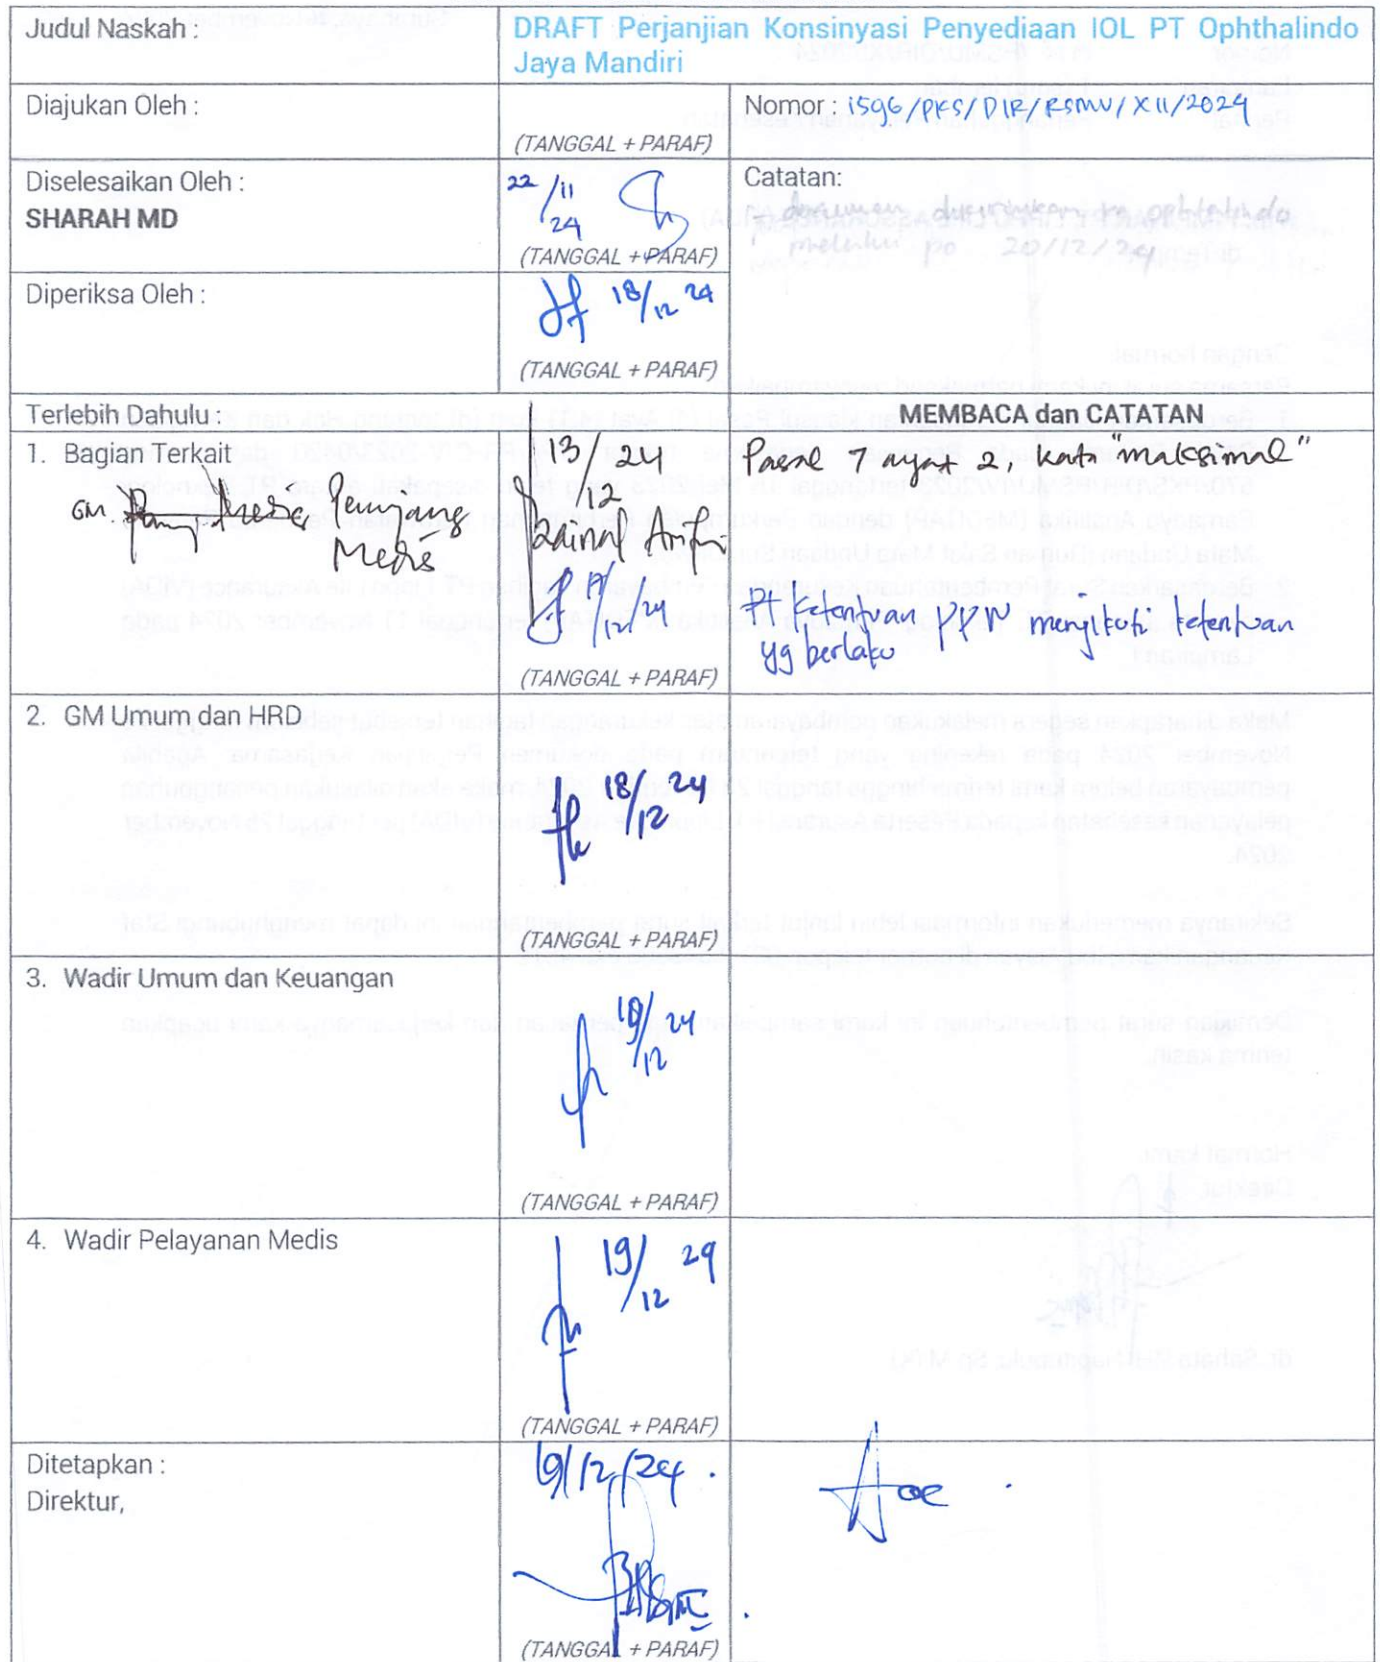 Judul Naskah :
DRAFT Perjanjian Konsinyasi Penyediaan IOL PT Ophthalindo
Jaya Mandiri
Diajukan Oleh :
(TANGGAL + PARAF)
Nomor : 1596/PKS/DIR/RSMU/XII/2024
Diselesaikan Oleh :
SHARAH MD
22/11 24
(TANGGAL + PARAF)
Catatan:
- dokumen dikirimkan ke ophtalindo
melalui po 20/12/24
Diperiksa Oleh :
18/12 24
(TANGGAL + PARAF)
Terlebih Dahulu :
MEMBACA dan CATATAN
1. Bagian Terkait
GM. Penunjang
Medis
13/12/24
Zainal Arifin
17/12/24
(TANGGAL + PARAF)
Pasal 7 ayat 2, kata "maksimal"
Ketentuan PPN mengikuti ketentuan
yg berlaku
2. GM Umum dan HRD
18/12 24
(TANGGAL + PARAF)
3. Wadir Umum dan Keuangan
19/12 24
(TANGGAL + PARAF)
4. Wadir Pelayanan Medis
19/12 24
(TANGGAL + PARAF)
Ditetapkan :
Direktur,
19/12/24.
(TANGGAL + PARAF)
Acc.